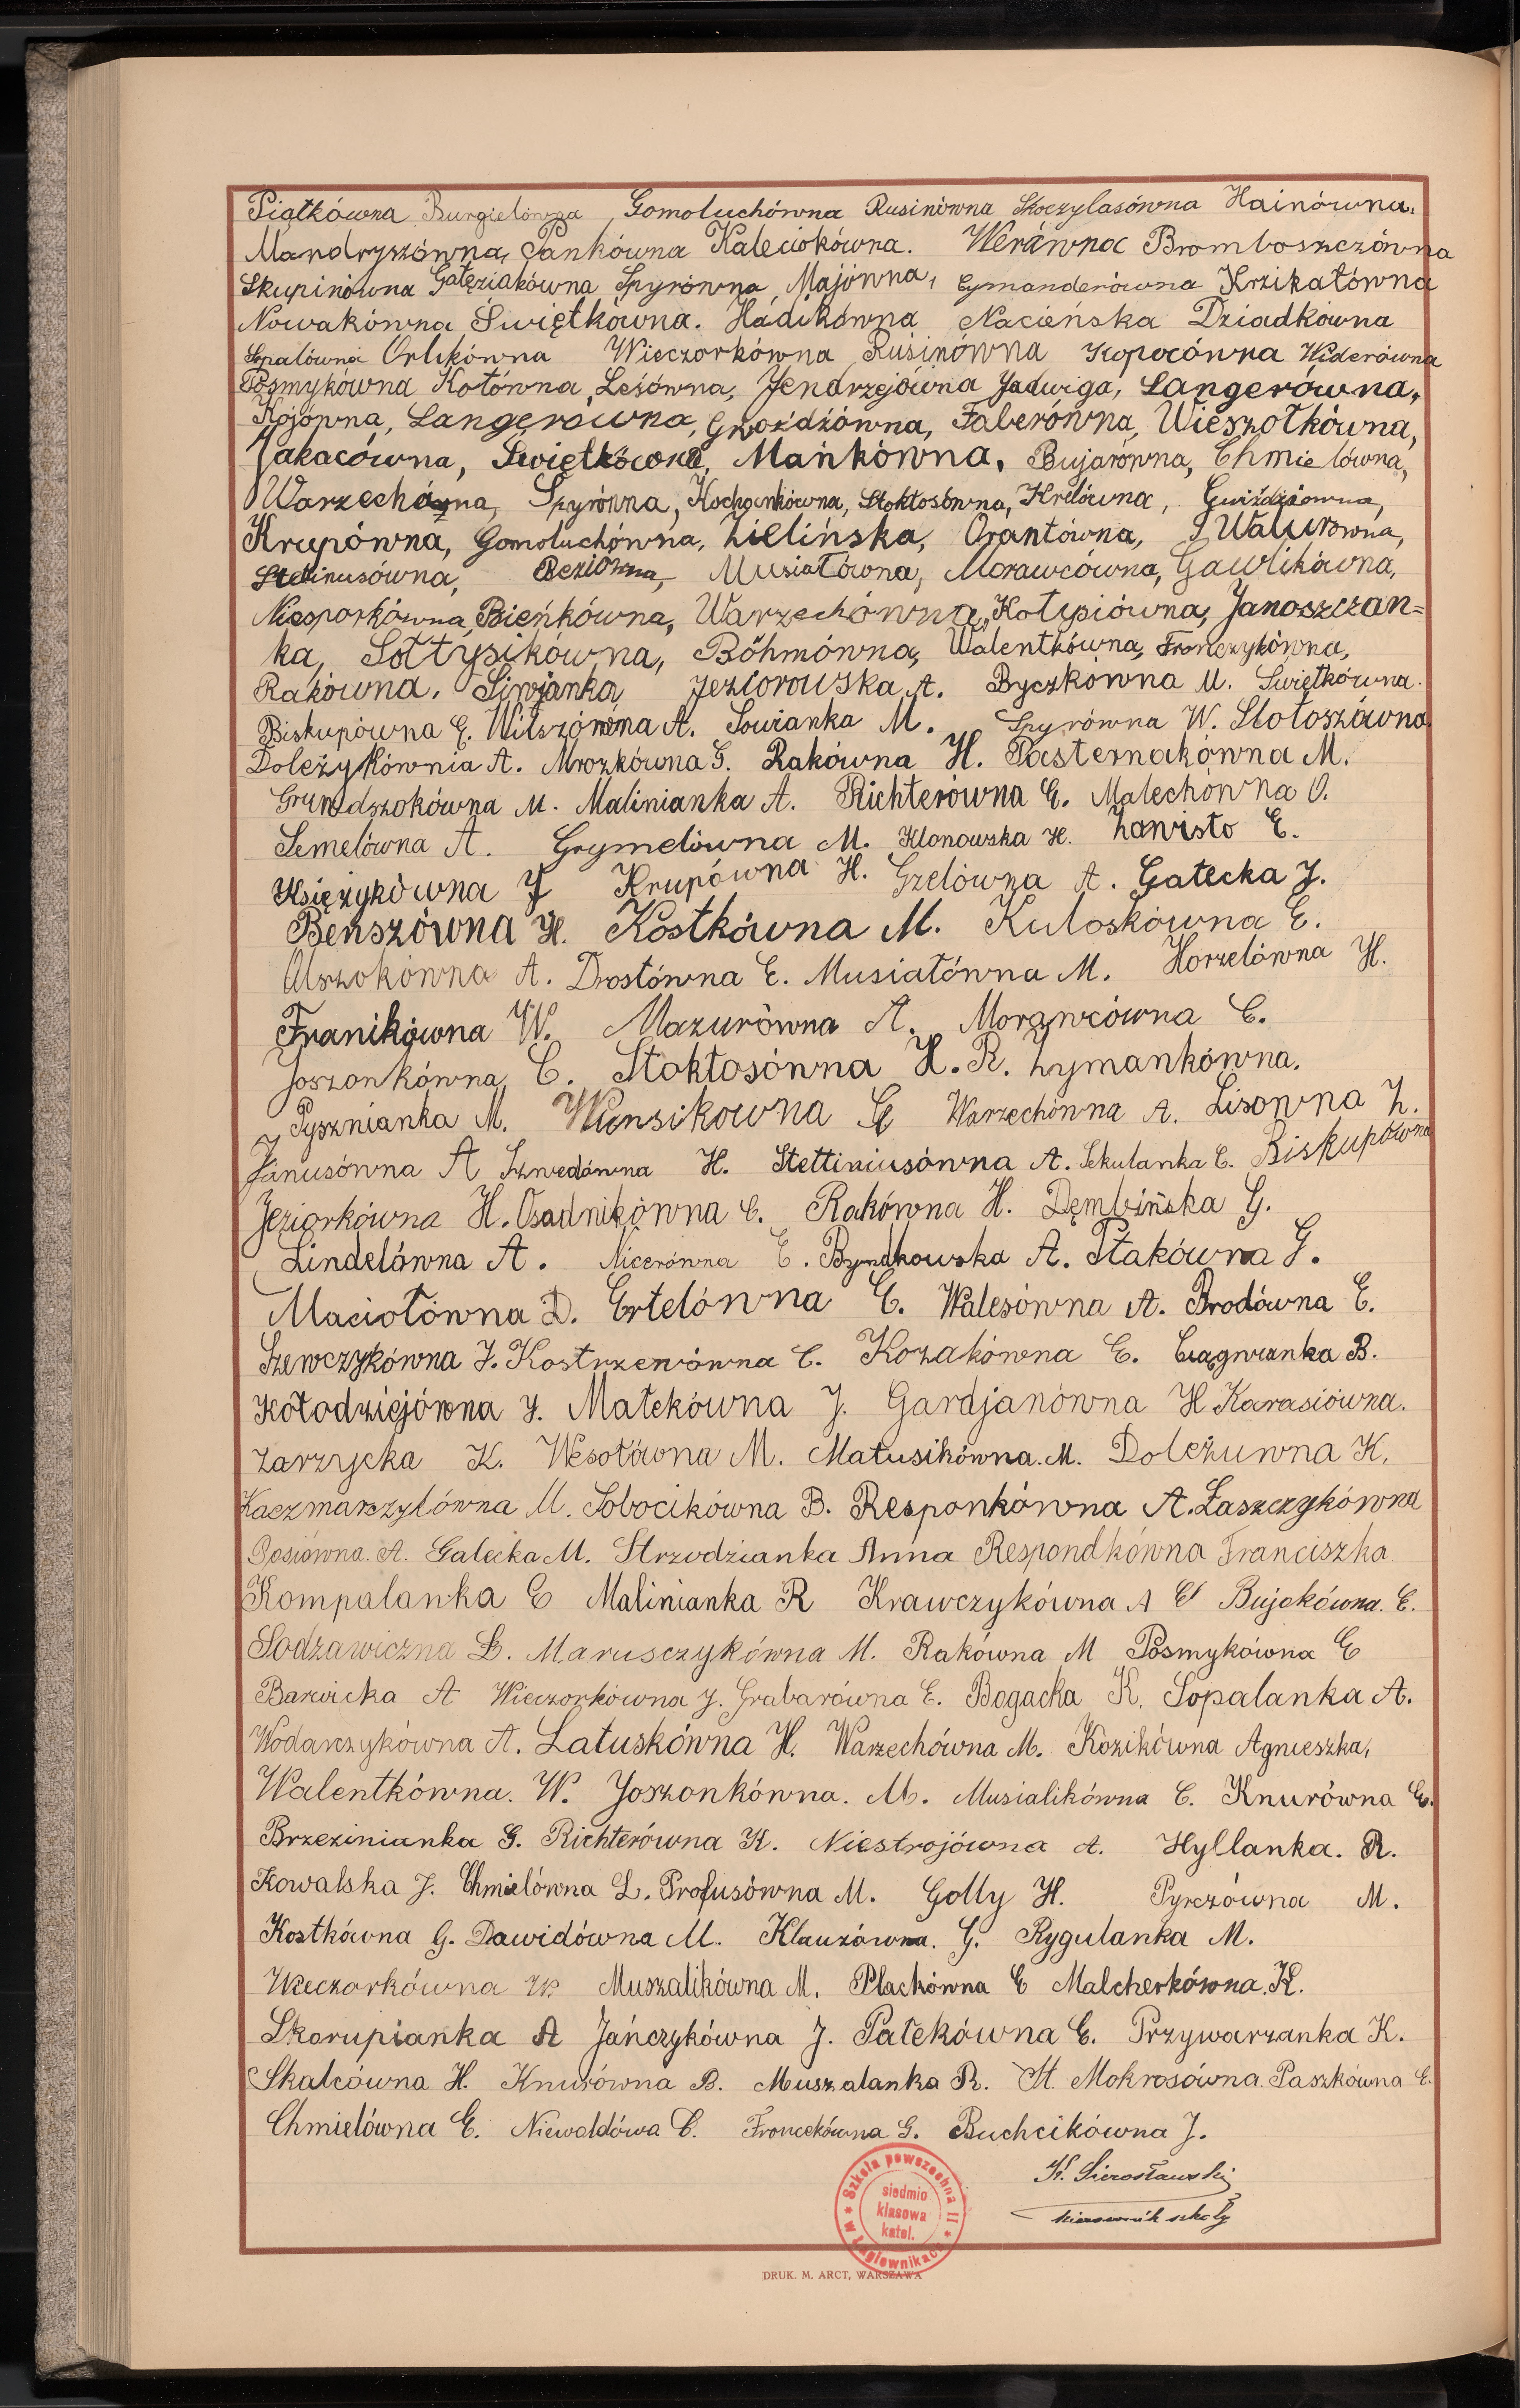 Piątkówna Burgielówna, Gomoluchówna Rusinówna Skoczylasówna Hainówna,
Mandryszówna, Pankówna Kaleciokówna. Werówna Bromboszczówna
Skupinówna Gałęziakówna Spyrówna, Majówna, Cymanderówna Krzikatówna
Nowakówna Świętkówna. Hadikówna Nacieńska Dziadkówna
Sopalówna Orlikówna Wieczorkówna Rusinówna Kopocówna Widerówna
Posmykówna Kotówna, Lesówna, Jendrzejówna Jadwiga, Langerówna,
Kojówna, Langerówna, Gwoździówna, Faberówna, Wieszołkówna,
Jakacówna, Świętkówna, Mańkówna, Bujarówna, Chmielówna,
Warzechówna, Spyrówna, Kochankówna, Stokłosówna, Krelówna, Gwiździówna,
Krupówna, Gomoluchówna, Zielińska, Orantówna, Walurówna,
Stetinusówna, Beziówna, Musiałówna, Morawcówna, Gawlikówna,
Niesporkówna, Bieńkówna, Warzechówna, Kołpiówna, Janoszczan=
ka, Sołtysikówna, Böhmówna, Walentkówna, Frończykówna,
Rakówna, Siwjanka Jeziorowska A. Byczkówna M. Świętkówna.
Biskupówna E. Witszówna A. Sowianka M. Spyrówna W. Słotoszówna
Doleżykównia A. Mrozkówna G. Rakówna H. Pasternakówna M.
Grundszokówna M. Malinianka A. Richterówna E. Malechówna O.
Semelówna A. Grymelówna M. Klonowska H. Zawisto E.
Księżykówna J Krupówna H. Gzelówna A. Gatecka J.
Benszówna H. Kostkówna M. Kuloskówna E.
Olszokówna A. Drostówna E. Musiałówna M. Horzelówna H.
Franikówna W. Mazurówna A. Morawcówna C.
Joszonkówna C. Stokłosówna H. R. Zymankówna.
Pysznianka M. Wiensikowna G Warzechówna A. Lisowna Z.
Janusówna A Szwedówna H. Stettiniusówna A. Sekulanka E. Biskupówna
Jeziorkówna H. Osadnikówna C. Rakówna H. Dębińska G.
Lindelówna A. Nicerówna E. Byndkowska A. Ptakówna G.
Maciołówna D. Ertelówna E. Walesówna A. Brodówna E.
Szewczykówna J. Kostrzewówna C. Kozakówna E. Ciągwianka B.
Kołodziejówna J. Małekówna J. Gardjanówna H Karasiówna.
Zarzycka K. Wesołówna M. Matusikówna. M. Doleżuwna K.
Kaczmarzykówna M. Sobocikówna B. Responkówna A. Łaszczykówna
Gosiówna. A. Galecka M. Strzodzianka Anna Respondkówna Franciszka
Kompalanka E Malinianka R Krawczykówna A E Bujokówna. E.
Sodzawiczna Ł. Marusczykówna M. Rakówna M Posmykówna E
Barwicka A Wieczorkówna J. Grabarówna E. Bogacka K. Sopalanka A.
Wodarczykówna A. Latuskówna H. Warzechówna M. Kozikówna Agnieszka,
Walentkówna. W. Joszonkówna. M. Musialikówna C. Knurówna E.
Brzezinianka G. Richterówna K. Niestrojówna A. Hyllanka. R.
Kowalska J. Chmielówna L. Profusówna M. Golly H. Pyrczówna M.
Kostkówna G. Dawidówna M. Klauzówna. G. Rygulanka M.
Wieczorkówna W Muszalikówna M. Plackówna E Malcherkówna. K.
Skorupianka A Jańczykówna J. Pałekówna E. Przywarzanka K.
Skalcówna H. Knurówna B. Muszalanka R. A. Mokrosówna. Paszkówna E.
Chmielówna E. Niewoldówa C. Froncekówna G. Buchcikówna J.
K. Sierosławski
kierownik szkoły
Szkoła powszechna II
siedmio
klasowa
katol.
w Łagiewnikach
DRUK. M. ARCT, WARSZAWA